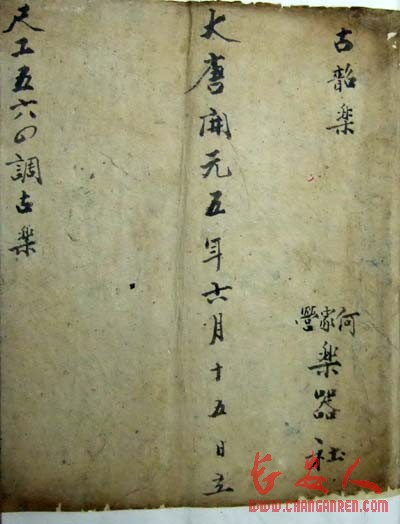 古韶楽
何家營
楽器社
大唐開元五年六月十五日立
尺工五六四調古楽
长安人
WWW.CHANGANREN.COM